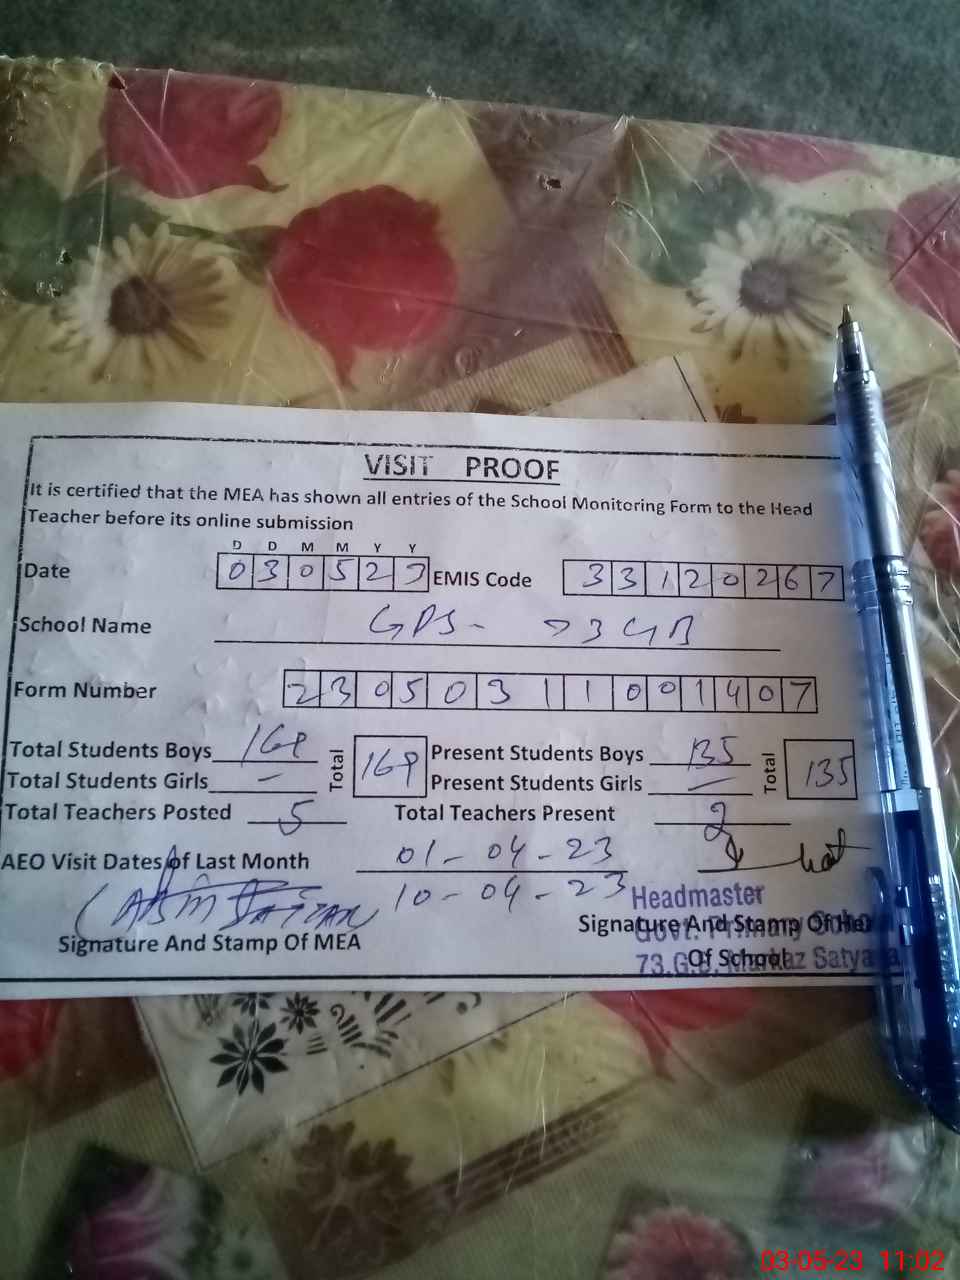 VISIT PROOF
It is certified that the MEA has shown all entries of the School Monitoring Form to the Head
Teacher before its online submission
D D M M Y Y
Date 0 3 0 5 2 3 EMIS Code 3 3 1 2 0 2 6 7
School Name GPS- 73 GB
Form Number 2 3 0 5 0 3 1 1 0 0 1 4 0 7
Total Students Boys 169 Total 169 Present Students Boys 135 Total 135
Total Students Girls — Present Students Girls —
Total Teachers Posted 5 Total Teachers Present 2
AEO Visit Dates of Last Month 01-04-23
10-04-23
Headmaster
Signature And Stamp Of MEA
Signature And Stamp Of He
Govt. Primary
Of School
73.G.B. Markaz Satyana
03-05-23 11:02